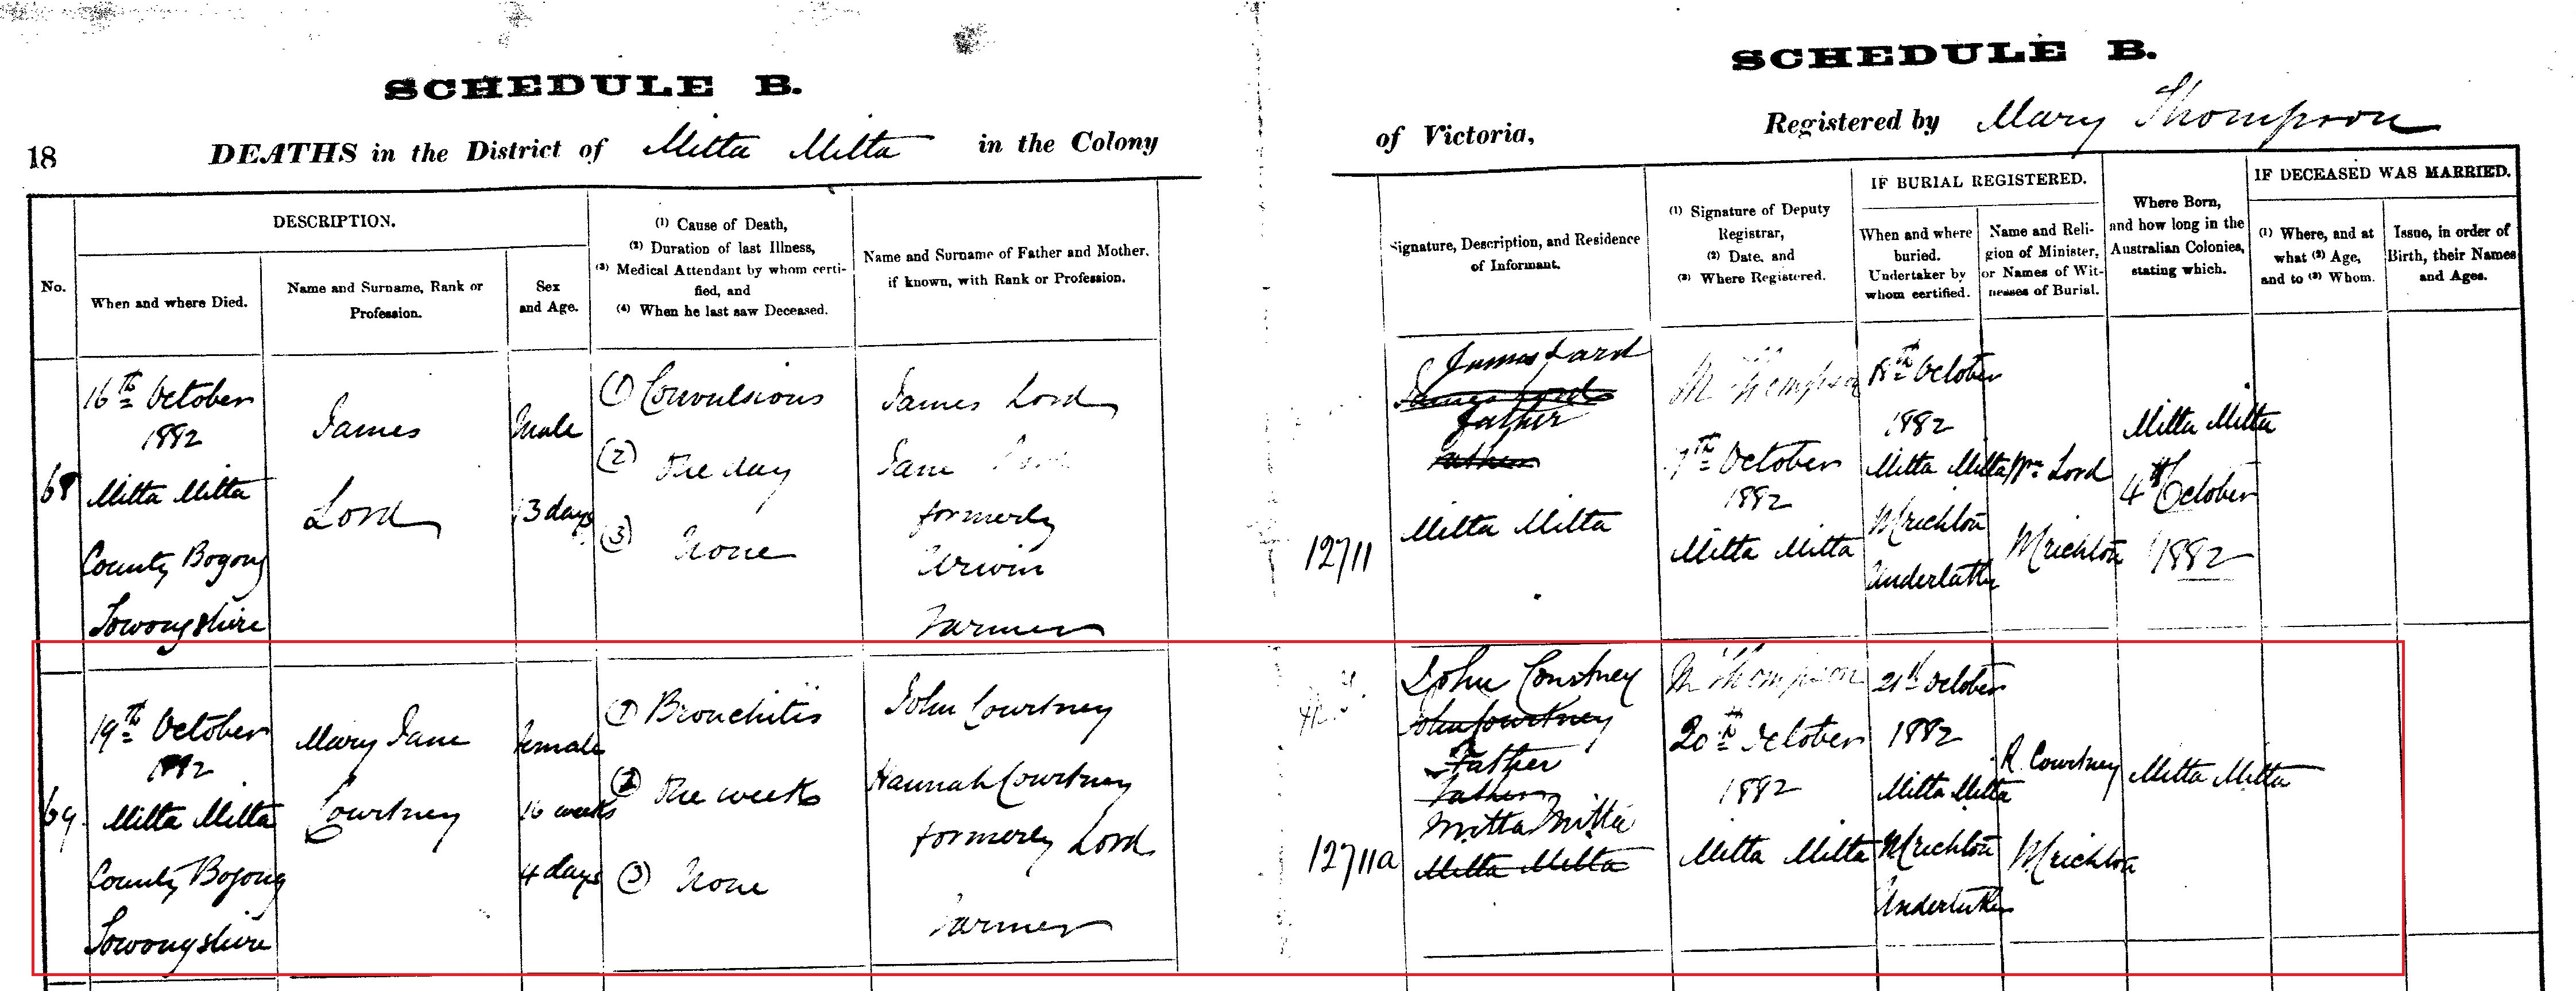 SCHEDULE B.
18
DEATHS in the District of Mitta Mitta in the Colony
No.
DESCRIPTION.
When and where Died.
Name and Surname, Rank or
Profession.
Sex
and Age.
(1) Cause of Death,
(2) Duration of last Illness,
(3) Medical Attendant by whom certi-
fied, and
(4) When he last saw Deceased.
Name and Surname of Father and Mother,
if known, with Rank or Profession.
68
16th October
1882
Mitta Mitta
County Bogong
Towong shire
James
Lord
Male
13 days
(1) Convulsions
(2) One day
(3) None
James Lord
Jane Lord
formerly
Irwin
Farmer
69.
19th October
1882
Mitta Mitta
County Bogong
Towong shire
Mary Jane
Courtney
Female
16 weeks
4 days
(1) Bronchitis
(2) One week
(3) None
John Courtney
Hannah Courtney
formerly Lord
Farmer
SCHEDULE B.
of Victoria,
Registered by Mary Thompson
Signature, Description, and Residence
of Informant.
(1) Signature of Deputy
Registrar,
(2) Date, and
(3) Where Registered.
IF BURIAL REGISTERED.
When and where
buried.
Undertaker by
whom certified.
Name and Reli-
gion of Minister,
or Names of Wit-
nesses of Burial.
Where Born,
and how long in the
Australian Colonies,
stating which.
IF DECEASED WAS MARRIED.
(1) Where, and at
what (2) Age,
and to (3) Whom.
Issue, in order of
Birth, their Names
and Ages.
12711
James Lord
James Lord
father
father
Mitta Mitta
M Thompson
17th October
1882
Mitta Mitta
18th October
1882
Mitta Mitta
Undertaker
Wm Lord
Mitta Mitta
4th October
1882
12711a
John Courtney
John Courtney
Father
Father
Mitta Mitta
Mitta Mitta
M Thompson
20th October
1882
Mitta Mitta
21st October
1882
Mitta Mitta
Undertaker
R. Courtney
Mitta Mitta